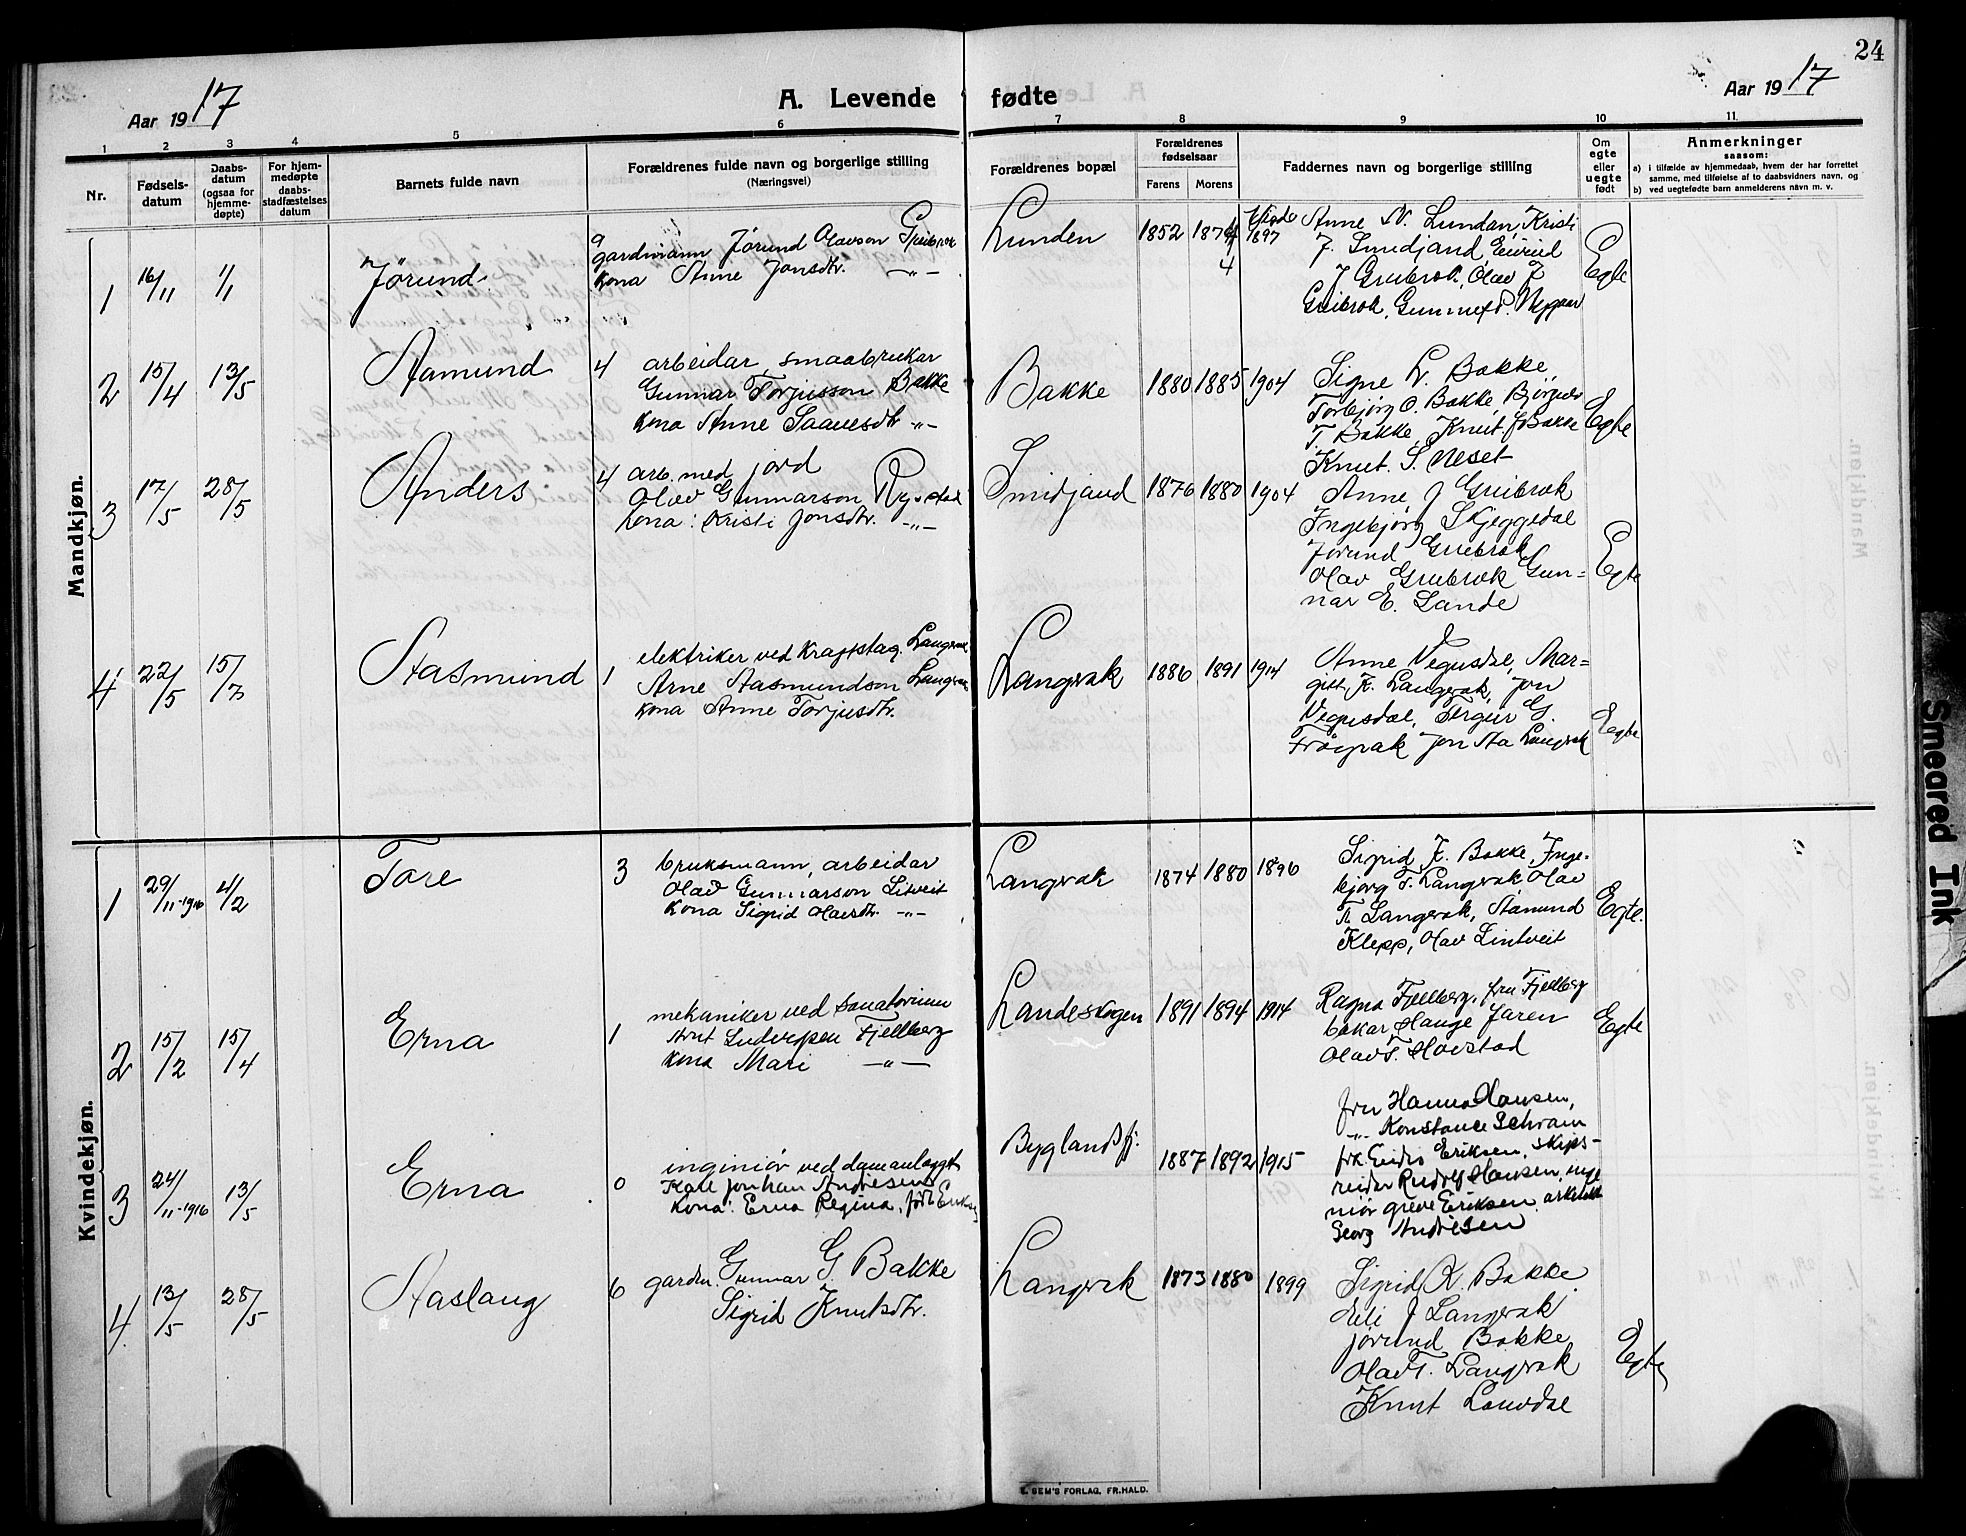 24
Aar 1917
A. Levende fødte
Aar 1917
1 2 3 4 5 6 7 8 9 10 11.
Nr.
Fødsels-
datum
Daabs-
datum
(ogsaa for
hjemme-
døpte)
For hjem-
medøpte
daabs-
stadfæstelses
datum
Barnets fulde navn
Forældrenes fulde navn og borgerlige stilling
(Næringsvei)
Forældrenes bopæl
Forældrenes
fødselsaar
Farens Morens
Faddernes navn og borgerlige stilling
Om
egte
eller
uegte
født
Anmerkninger
saasom:
a) i tilfælde av hjemmedaab, hvem der har forrettet
samme, med tilføielse af to daabsvidners navn, og
b) ved uegtefødte barn anmelderens navn m. v.
Mandkjøn.
1 16/11 1/1 Jørund
9 gardmann Jørund Olavson Greibrok
kona Anne Jonsdtr. -"-
Lunden 1852 1874 4 Vigde 1897
Anne N. Lunden, Kristi
J. Smidjand, Eivind
J Greibrok, Olav J
Greibrok, Gunnuf d. Nygaar
Egte
2 15/4 13/5 Aamund
4 arbeidar, smaabrukar
Gunnar Torjusson Bakke
kona Anne Saavesdtr -"-
Bakke 1880 1885 1904
Signe L. Bakke,
Torbjørg O. Bakke, Bjørgulv
T. Bakke, Knut J Bakke
Knut S. Neset
Egte
3 17/5 28/5 Anders
4 arb. med jord
Olav Gunnarson Rysstad
kona: Kristi Jonsdtr. -"-
Smidjand 1876 1880 1904
Anne J Greibrok
Ingebjørg Skjeggedal
Jorund Greibrok
Olav Greibrok Gun=
nar E. Lande
Egte
4 22/5 15/7 Aasmund
1 elektriker ved kraftstag. Langerak
Arne Aasmundson Langerak
kona Anne Torjusdtr.
Langerak 1886 1891 1914
Anne Vegusdal, Mar=
git K. Langerak, Jon
Vegusdal, Tergus G.
Frøysak Jon Aa Langerak
Egte
Kvindekjøn.
1 29/11-1916 4/2 Tore
3 bruksmann, arbeidar
Olav Gunnarson Litveit
kona Sigrid Olavsdtr. -"-
Langerak 1874 1880 1896
Sigrid K. Bakke, Inge-
bjørg T. Langerak, Olav
T. Langerak, Aamund
Klepp, Olav Lintveit
Egte.
2 15/2 15/4 Erna
1 mekaniker ved Sanatorium
Ludvigsen Fjellberg
kona Mari -"-
Landeskogen 1891 1894 1914
Ragna Fjellberg, fru Fjellberg
bakar Hauge Jaren
Olav T. Hovstad
Egte
3 24/11-1916 13/5 Erna
0 inginiør ved damanlægget
Kare Jonhan Andresen
kona: Erna Regina, født Eriksen
Byglandsfj. 1887 1892 1915
fru Hanna Hansen,
-"- Konstance Schram
frk. Endre Eriksen, skips-
reider Rudolf Hansen, inge
niør greve Eriksen, arkitekt
Georg Andresen
4. 13/5 28/5 Aaslaug
6 gardm. Gunnar G Bakke
Sigrid Knutsdtr.
Langerak 1873 1880 1899
Sigrid K. Bakke
Eli J Langerak
Jorund Bakke
Olav T. Langerak
Knut Lauvdal
Egte
E. SEM'S FORLAG, FR.HALD.
Smeared Ink